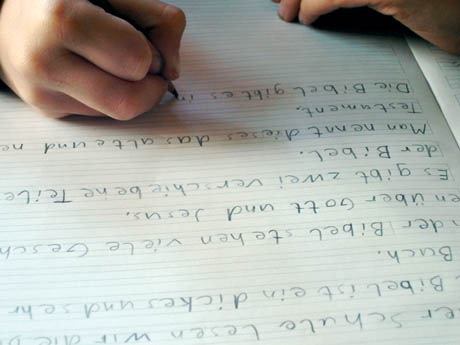 er Schule Lesen wir die B
Bibel ist ein dickes und sehr
Buch.
n der Bibel stehen viele Gesch
en über Gott und Jesus.
Es gibt zwei verschiebene Teile
der Bibel.
Man nennt dieses das alte und ne
Testament.
Die Bibel gibt es i